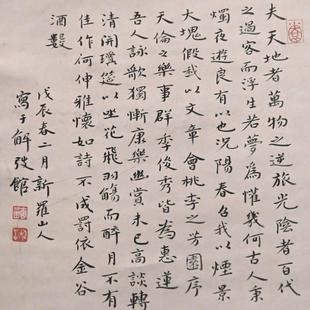 夫天地者萬物之逆旅光陰者百代
之過客而浮生若夢為懽幾何古人秉
燭夜遊良有以也況陽春召我以煙景
大塊假我以文章會桃李之芳園序
天倫之樂事群季俊秀皆為惠連
吾人詠歌獨慚康樂幽賞未已高談轉
清開瓊筵以坐花飛羽觴而醉月不有
佳作何伸雅懷如詩不成罰依金谷
酒數
戊辰春二月新羅山人
寫于解弢館